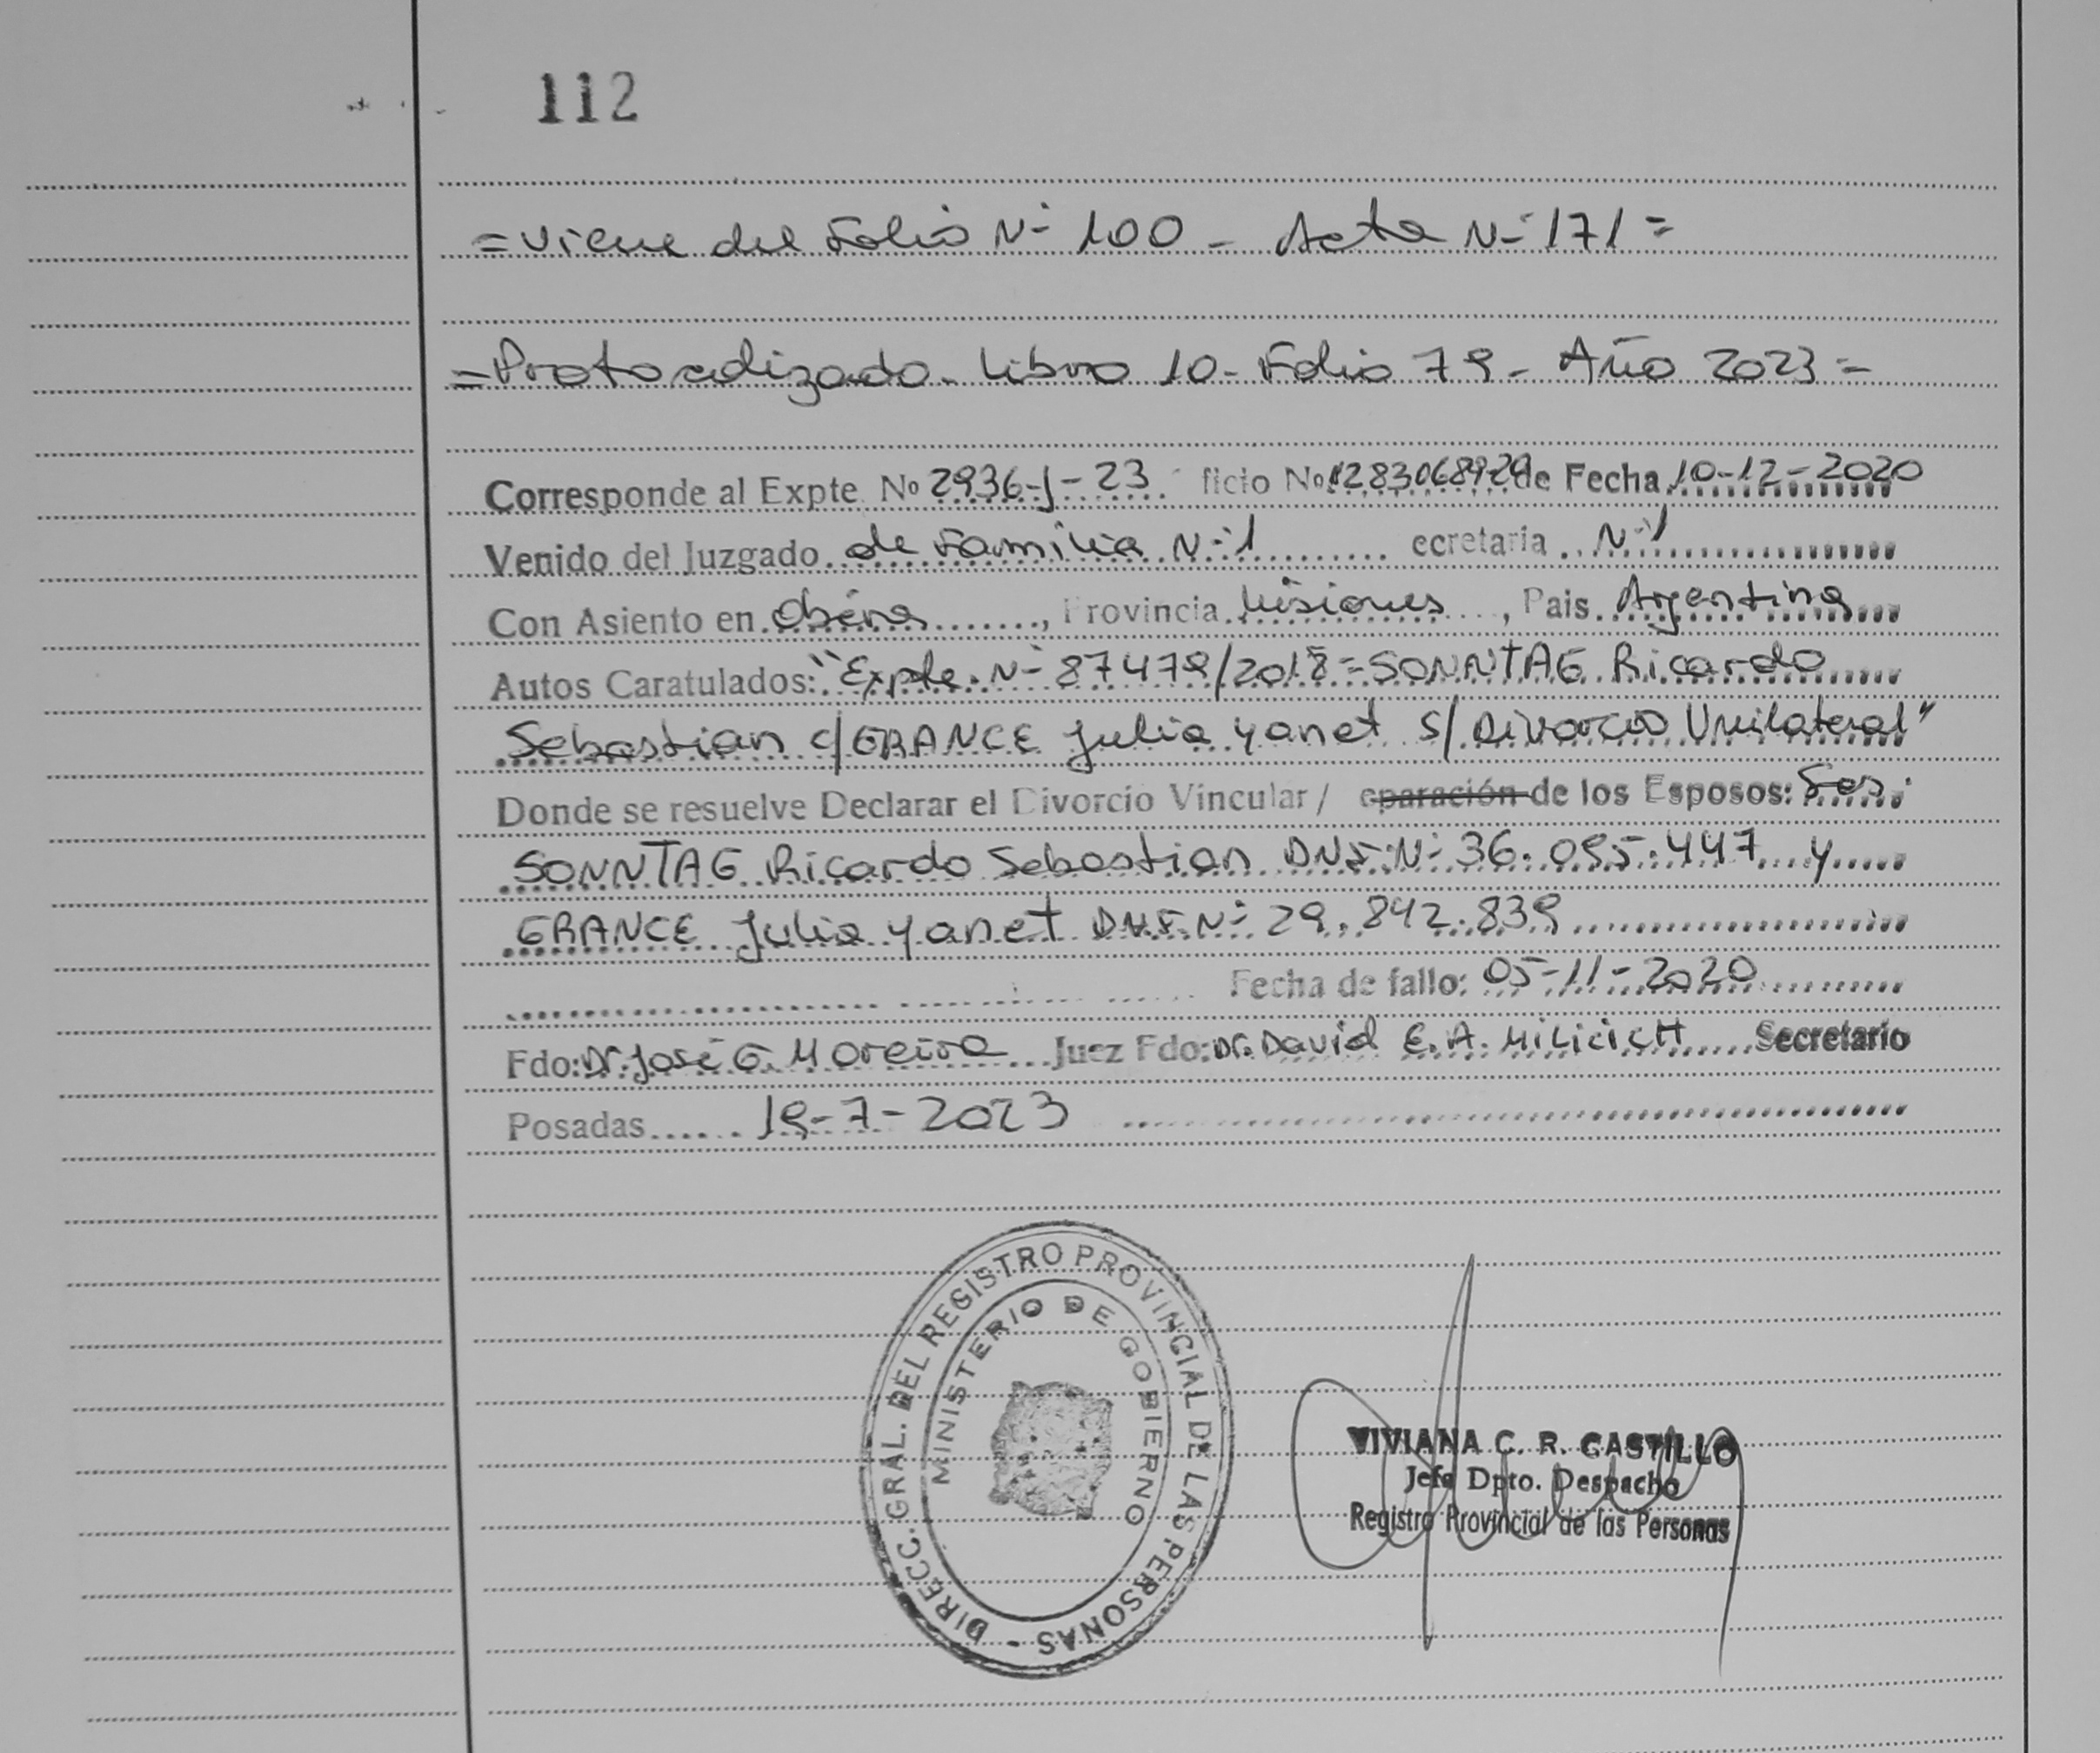 112
= Viene del Folio Nº 100 - Acta Nº 171 =
= Protocolizado - Libro 10 - Folio 79 - Año 2023 =
Corresponde al Expte. Nº 2936-J-23 ficio Nº 1283068920 de Fecha 10-12-2020
Venido del Juzgado de Familia Nº 1 ecretaria Nº 1
Con Asiento en Oberá, Provincia Misiones, Pais Argentina
Autos Caratulados: "Expte. Nº 87479/2018 = SONNTAG Ricardo
Sebastian c/ GRANCE Julia Yanet S/ Divorcio Unilateral"
Donde se resuelve Declarar el Divorcio Vincular / eparación de los Esposos: Ses.
SONNTAG Ricardo Sebastian DNI Nº 36.095.447 y
GRANCE Julia Yanet DNI Nº 29.842.839
Fecha de fallo: 05-11-2020
Fdo: Dr. José G. Moreira Juez Fdo: Dr. David E. A. MILICICH Secretario
Posadas 19-7-2023
DIRECC. GRAL. DEL REGISTRO PROVINCIAL DE LAS PERSONAS -
MINISTERIO DE GOBIERNO
VIVIANA C. R. CASTILLO
Jefa Dpto. Despacho
Registro Provincial de las Personas